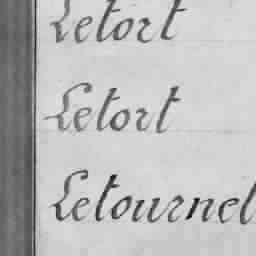 Letort
Letort
Letournel